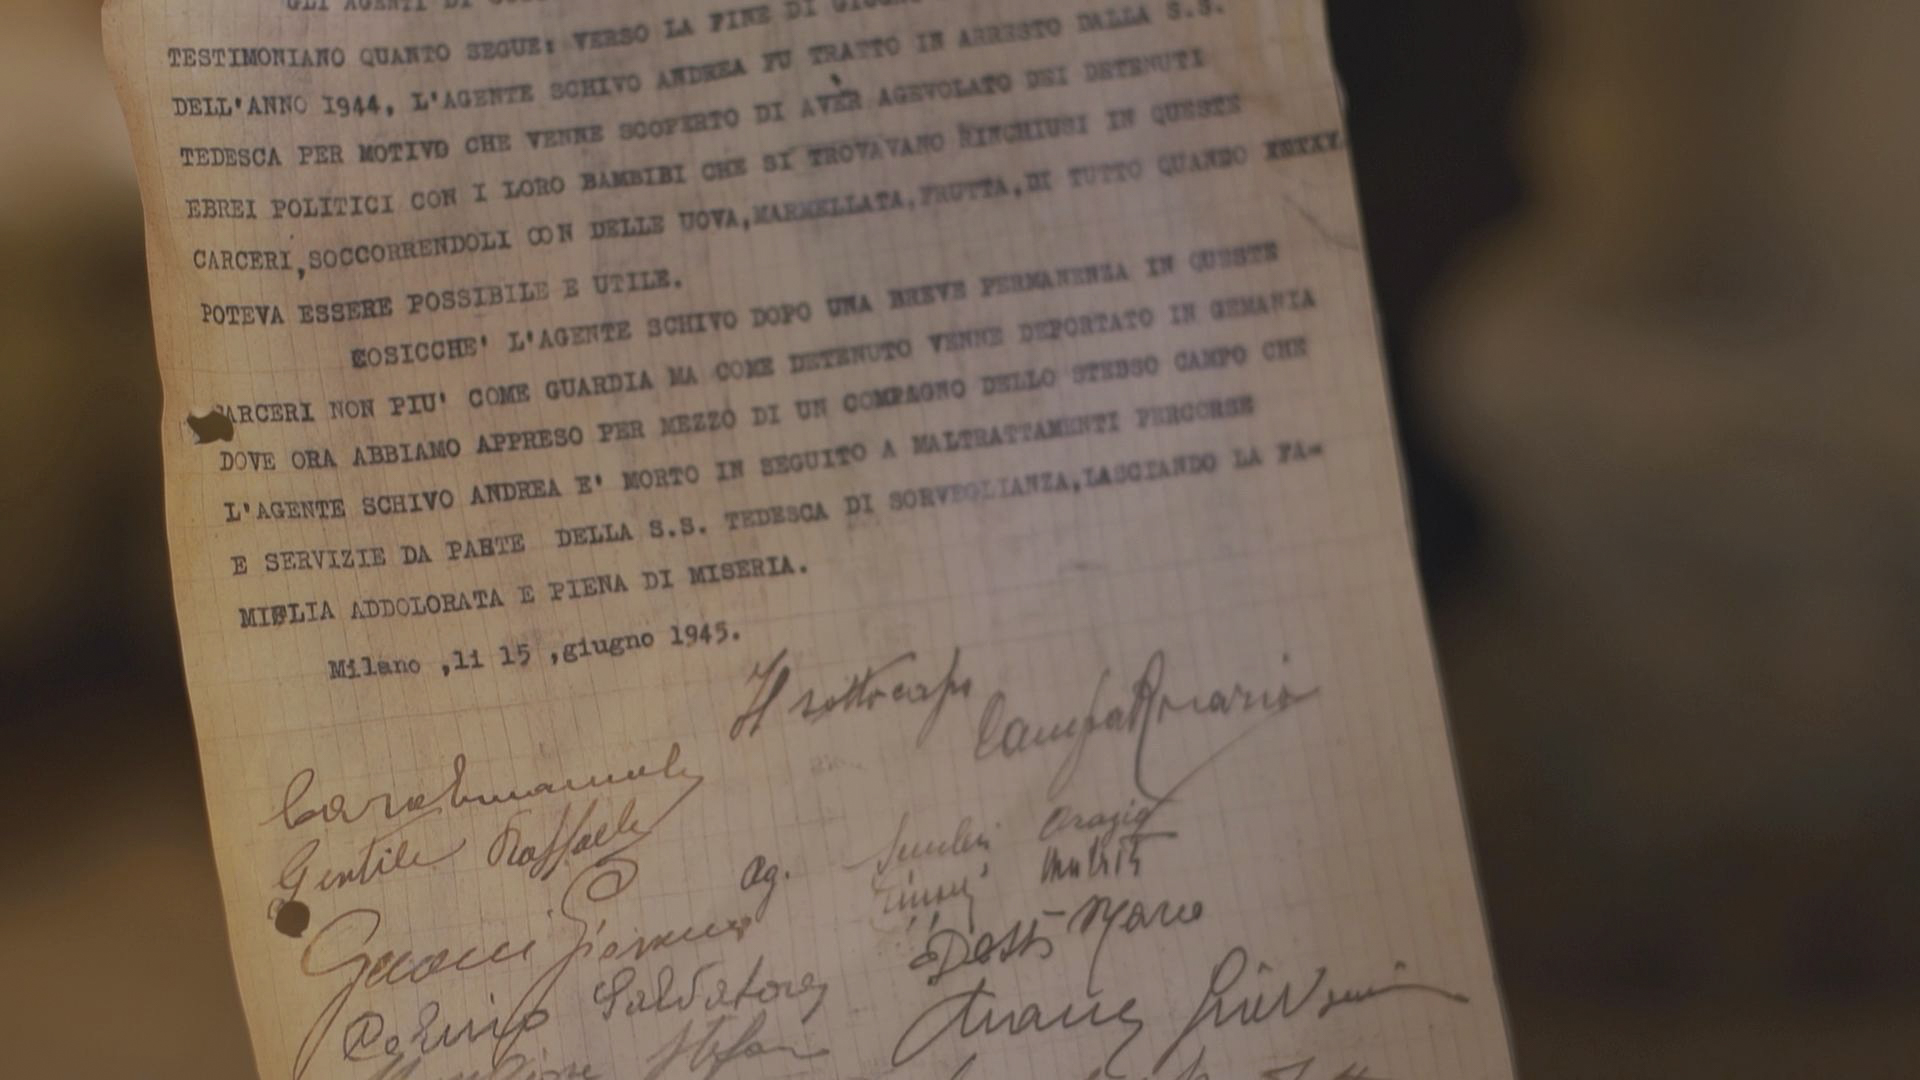 GLI AGENTI DI
TESTIMONIANO QUANTO SEGUE: VERSO LA FINE DI GIUGNO
DELL'ANNO 1944, L'AGENTE SCHIVO ANDREA FU TRATTO IN ARRESTO DALLA S.S.
TEDESCA PER MOTIVO CHE VENNE SCOPERTO DI AVER AGEVOLATO DEI DETENUTI
EBREI POLITICI CON I LORO BAMBIBI CHE SI TROVAVANO RINCHIUSI IN QUESTE
CARCERI,SOCCORRENDOLI CON DELLE UOVA,MARMELLATA,FRUTTA,DI TUTTO QUANDO
POTEVA ESSERE POSSIBILE E UTILE.
COSICCHE' L'AGENTE SCHIVO DOPO UNA BREVE PERMANENZA IN QUESTE
CARCERI NON PIU' COME GUARDIA MA COME DETENUTO VENNE DEPORTATO IN GEMANIA
DOVE ORA ABBIAMO APPRESO PER MEZZO DI UN COMPAGNO DELLO STESSO CAMPO CHE
L'AGENTE SCHIVO ANDREA E' MORTO IN SEGUITO A MALTRATTAMENTI PERCORSE
E SERVIZIE DA PARTE DELLA S.S. TEDESCA DI SORVEGLIANZA,LASCIANDO LA FA-
MIGLIA ADDOLORATA E PIENA DI MISERIA.
Milano ,li 15 ,giugno 1945.
Il sottocapo
Rosario
Gentile Raffaele
Ag. Orazio
Dessì Mario
Salvatore
Stefano